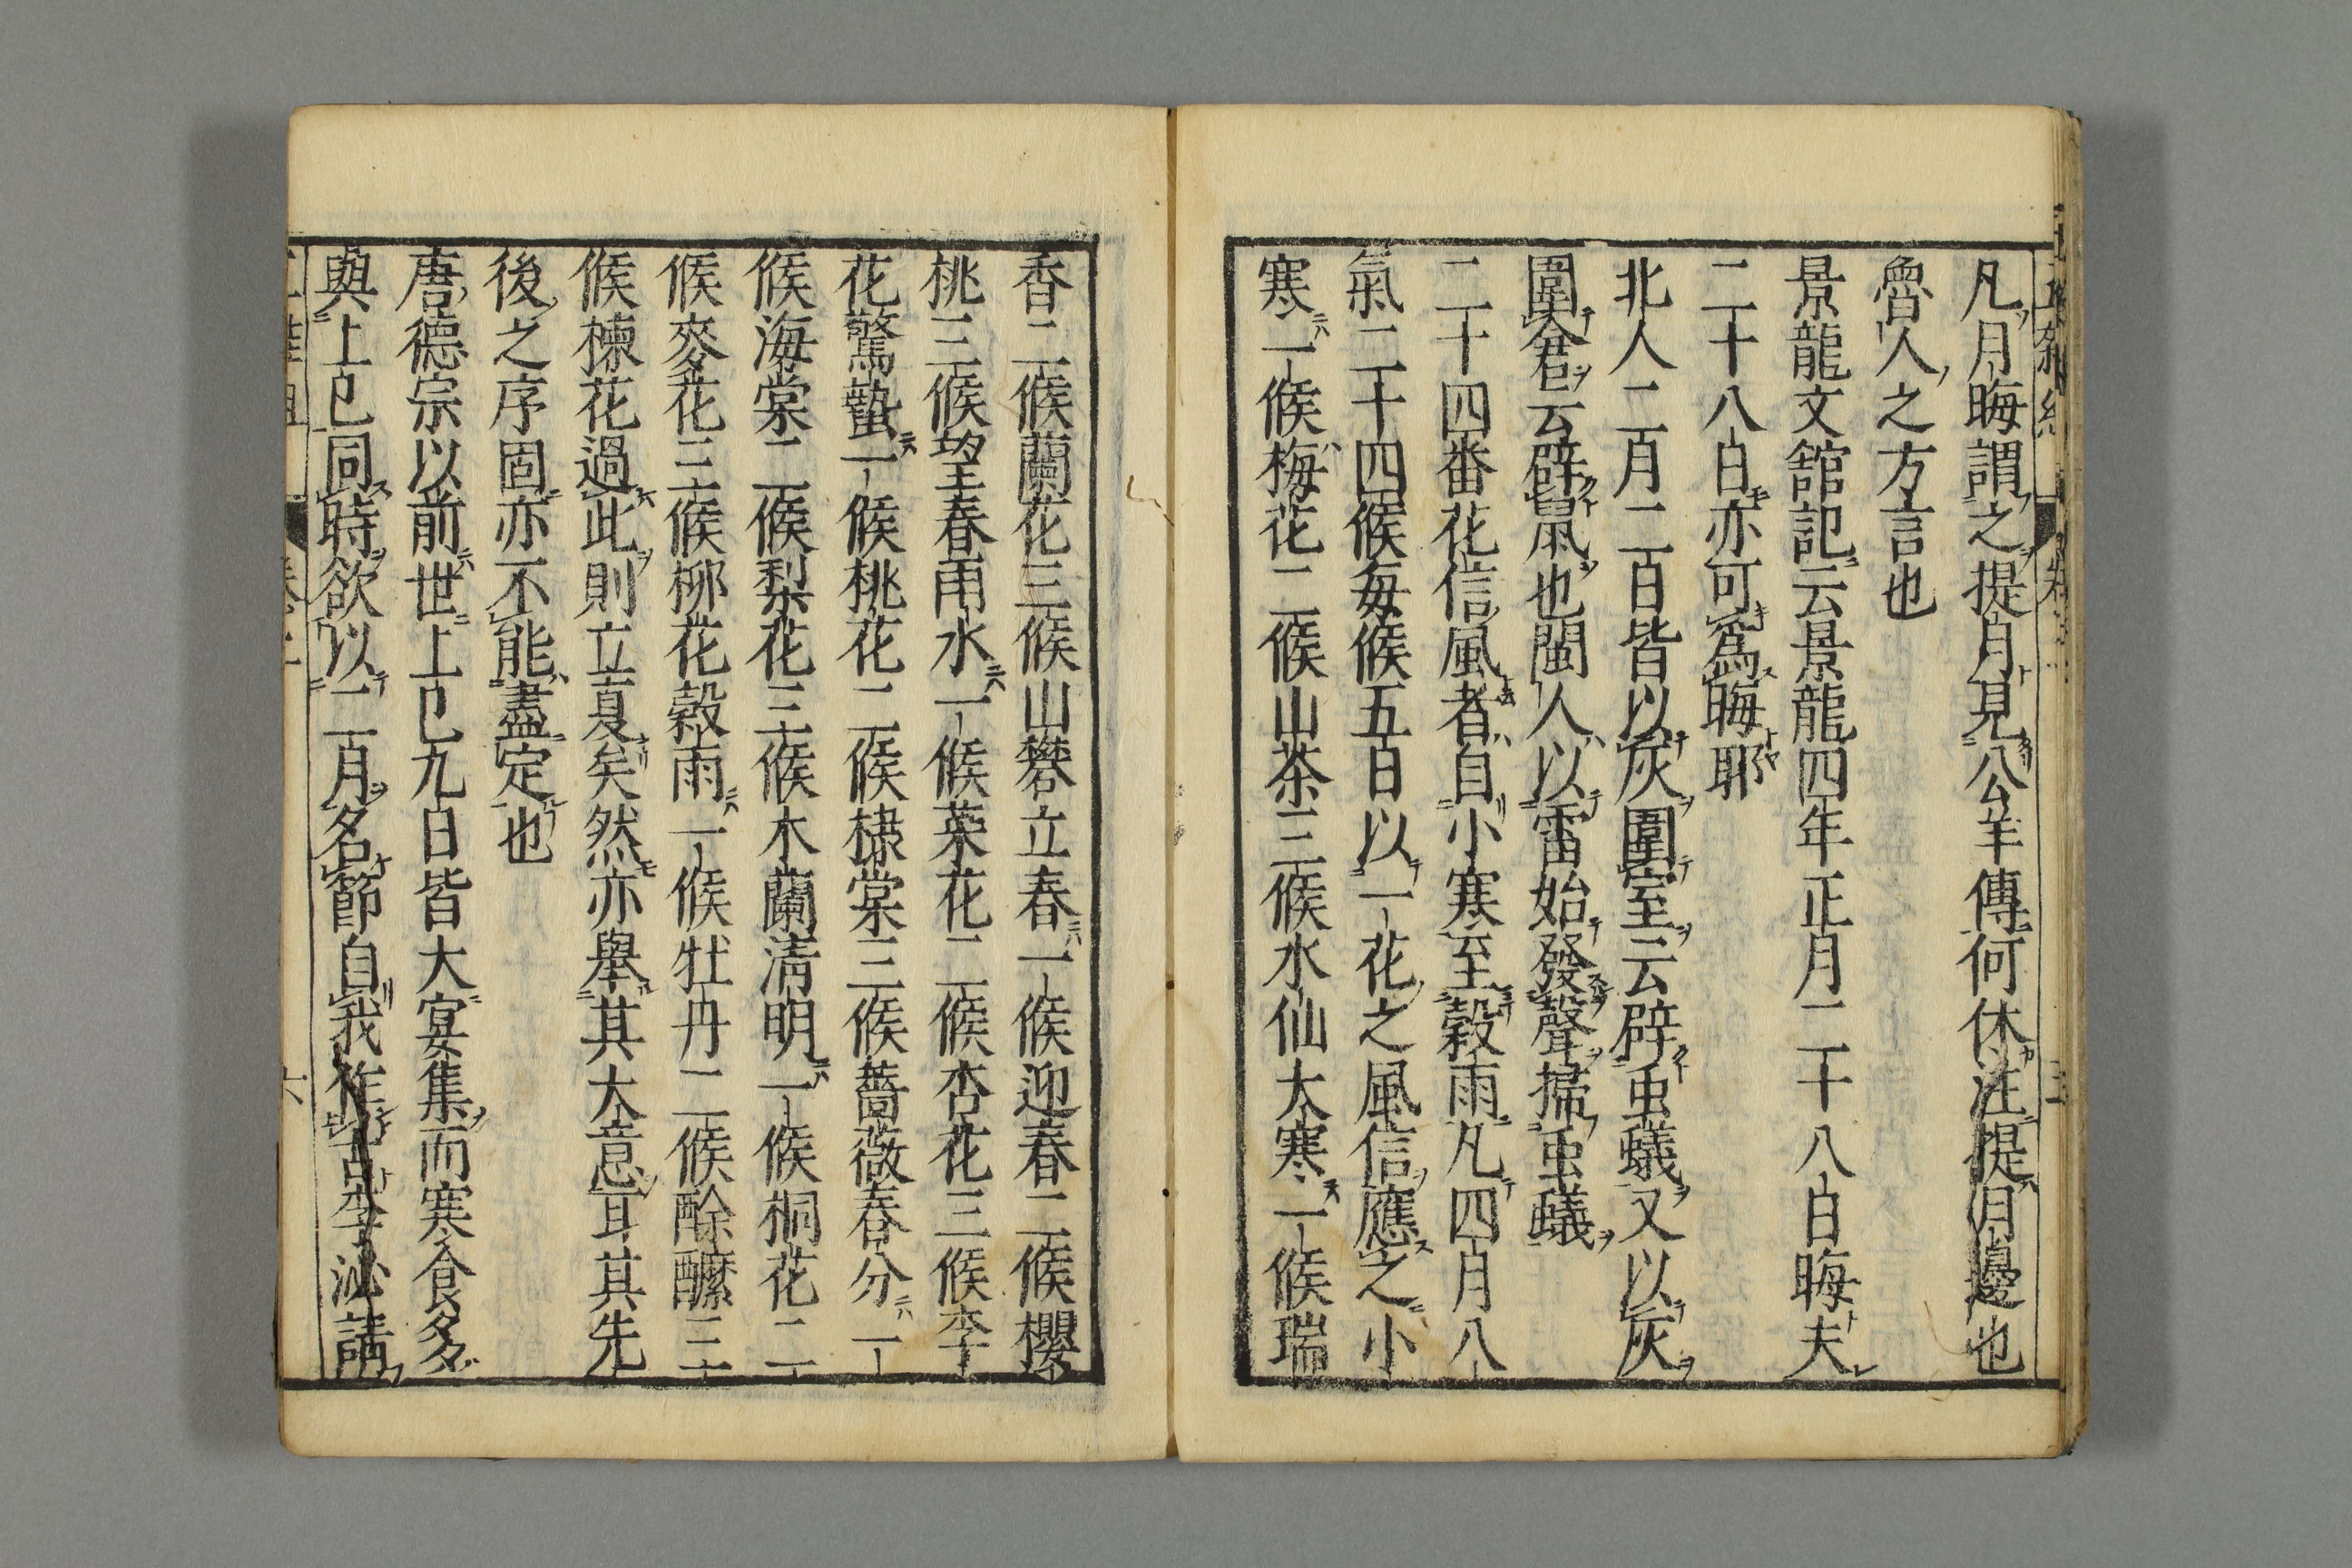 凡月晦謂之提月見公羊傳何休注提月邊也
魯人之方言也
景龍文舘記云景龍四年正月二十八日晦夫
二十八日亦可爲晦耶
北人二月二日皆以灰圍室云辟虫蟻又以灰
圍倉云辟鼠也閩人以雷始發聲掃虫蟻
二十四番花信風者自小寒至穀雨凡四月八
氣二十四候每候五日以一花之風信應之小
寒一候梅花二候山茶三候水仙大寒一候瑞
香二候蘭花三候山礬立春一候迎春二候櫻
桃三候望春雨水一候菜花二候杏花三候李
花驚蟄一候桃花二候棣棠三候薔薇春分一
候海棠二候梨花三候木蘭清明一候桐花二
候麥花三候柳花穀雨一候牡丹二候酴醿三
候楝花過此則立夏矣然亦舉其大意耳其先
後之序固亦不能盡定也
唐德宗以前世上巳九日皆大宴集而寒食多
與上巳同時欲以二月名節自我作古李泌請